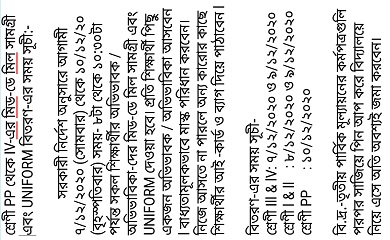 শ্রেণী PP থেকে IV-এর মিড-ডে মিল সামগ্রী
এবং UNIFORM বিতরণ-এর সময় সূচী:-
সরকারী নির্দেশ অনুসারে আগামী
৭/১২/২০ (সোমবার) থেকে ১০/১২/২০
(বৃহস্পতিবার) সময়- ৮টা থেকে ১০:০০টা
পর্যন্ত সকল শিক্ষার্থীর অভিভাবক /
অভিভাবিকা-দের মিড-ডে মিল সামগ্রী এবং
UNIFORM দেওয়া হবে। প্রতি শিক্ষার্থী পিছু
একজন অভিভাবক / অভিভাবিকা আসবেন
। বাধ্যতামূলকভাবে মাস্ক পরিধান করবেন।
নিজে আসতে না পারলে অন্য কারোর কাছে
শিক্ষার্থীর আই -কার্ড ও ব্যাগ দিয়ে পাঠাবেন।
বিতরণ-এর সময় সূচী-
শ্রেণী III & IV: ৭/১২/২০২০ ও ৯/১২/২০২০
শ্রেণী I & II : ৮/১২/২০২০ ও ৯/১২/২০২০
শ্রেণী PP : ১০/১২/২০২০
বি.দ্র.-তৃতীয় পার্বিক মূল্যায়নের কর্মপত্রগুলি
পরপর সাজিয়ে পিন আপ করে বিদ্যালয়ে
নিয়ে এসে অতি অবশ্যই জমা করবেন।